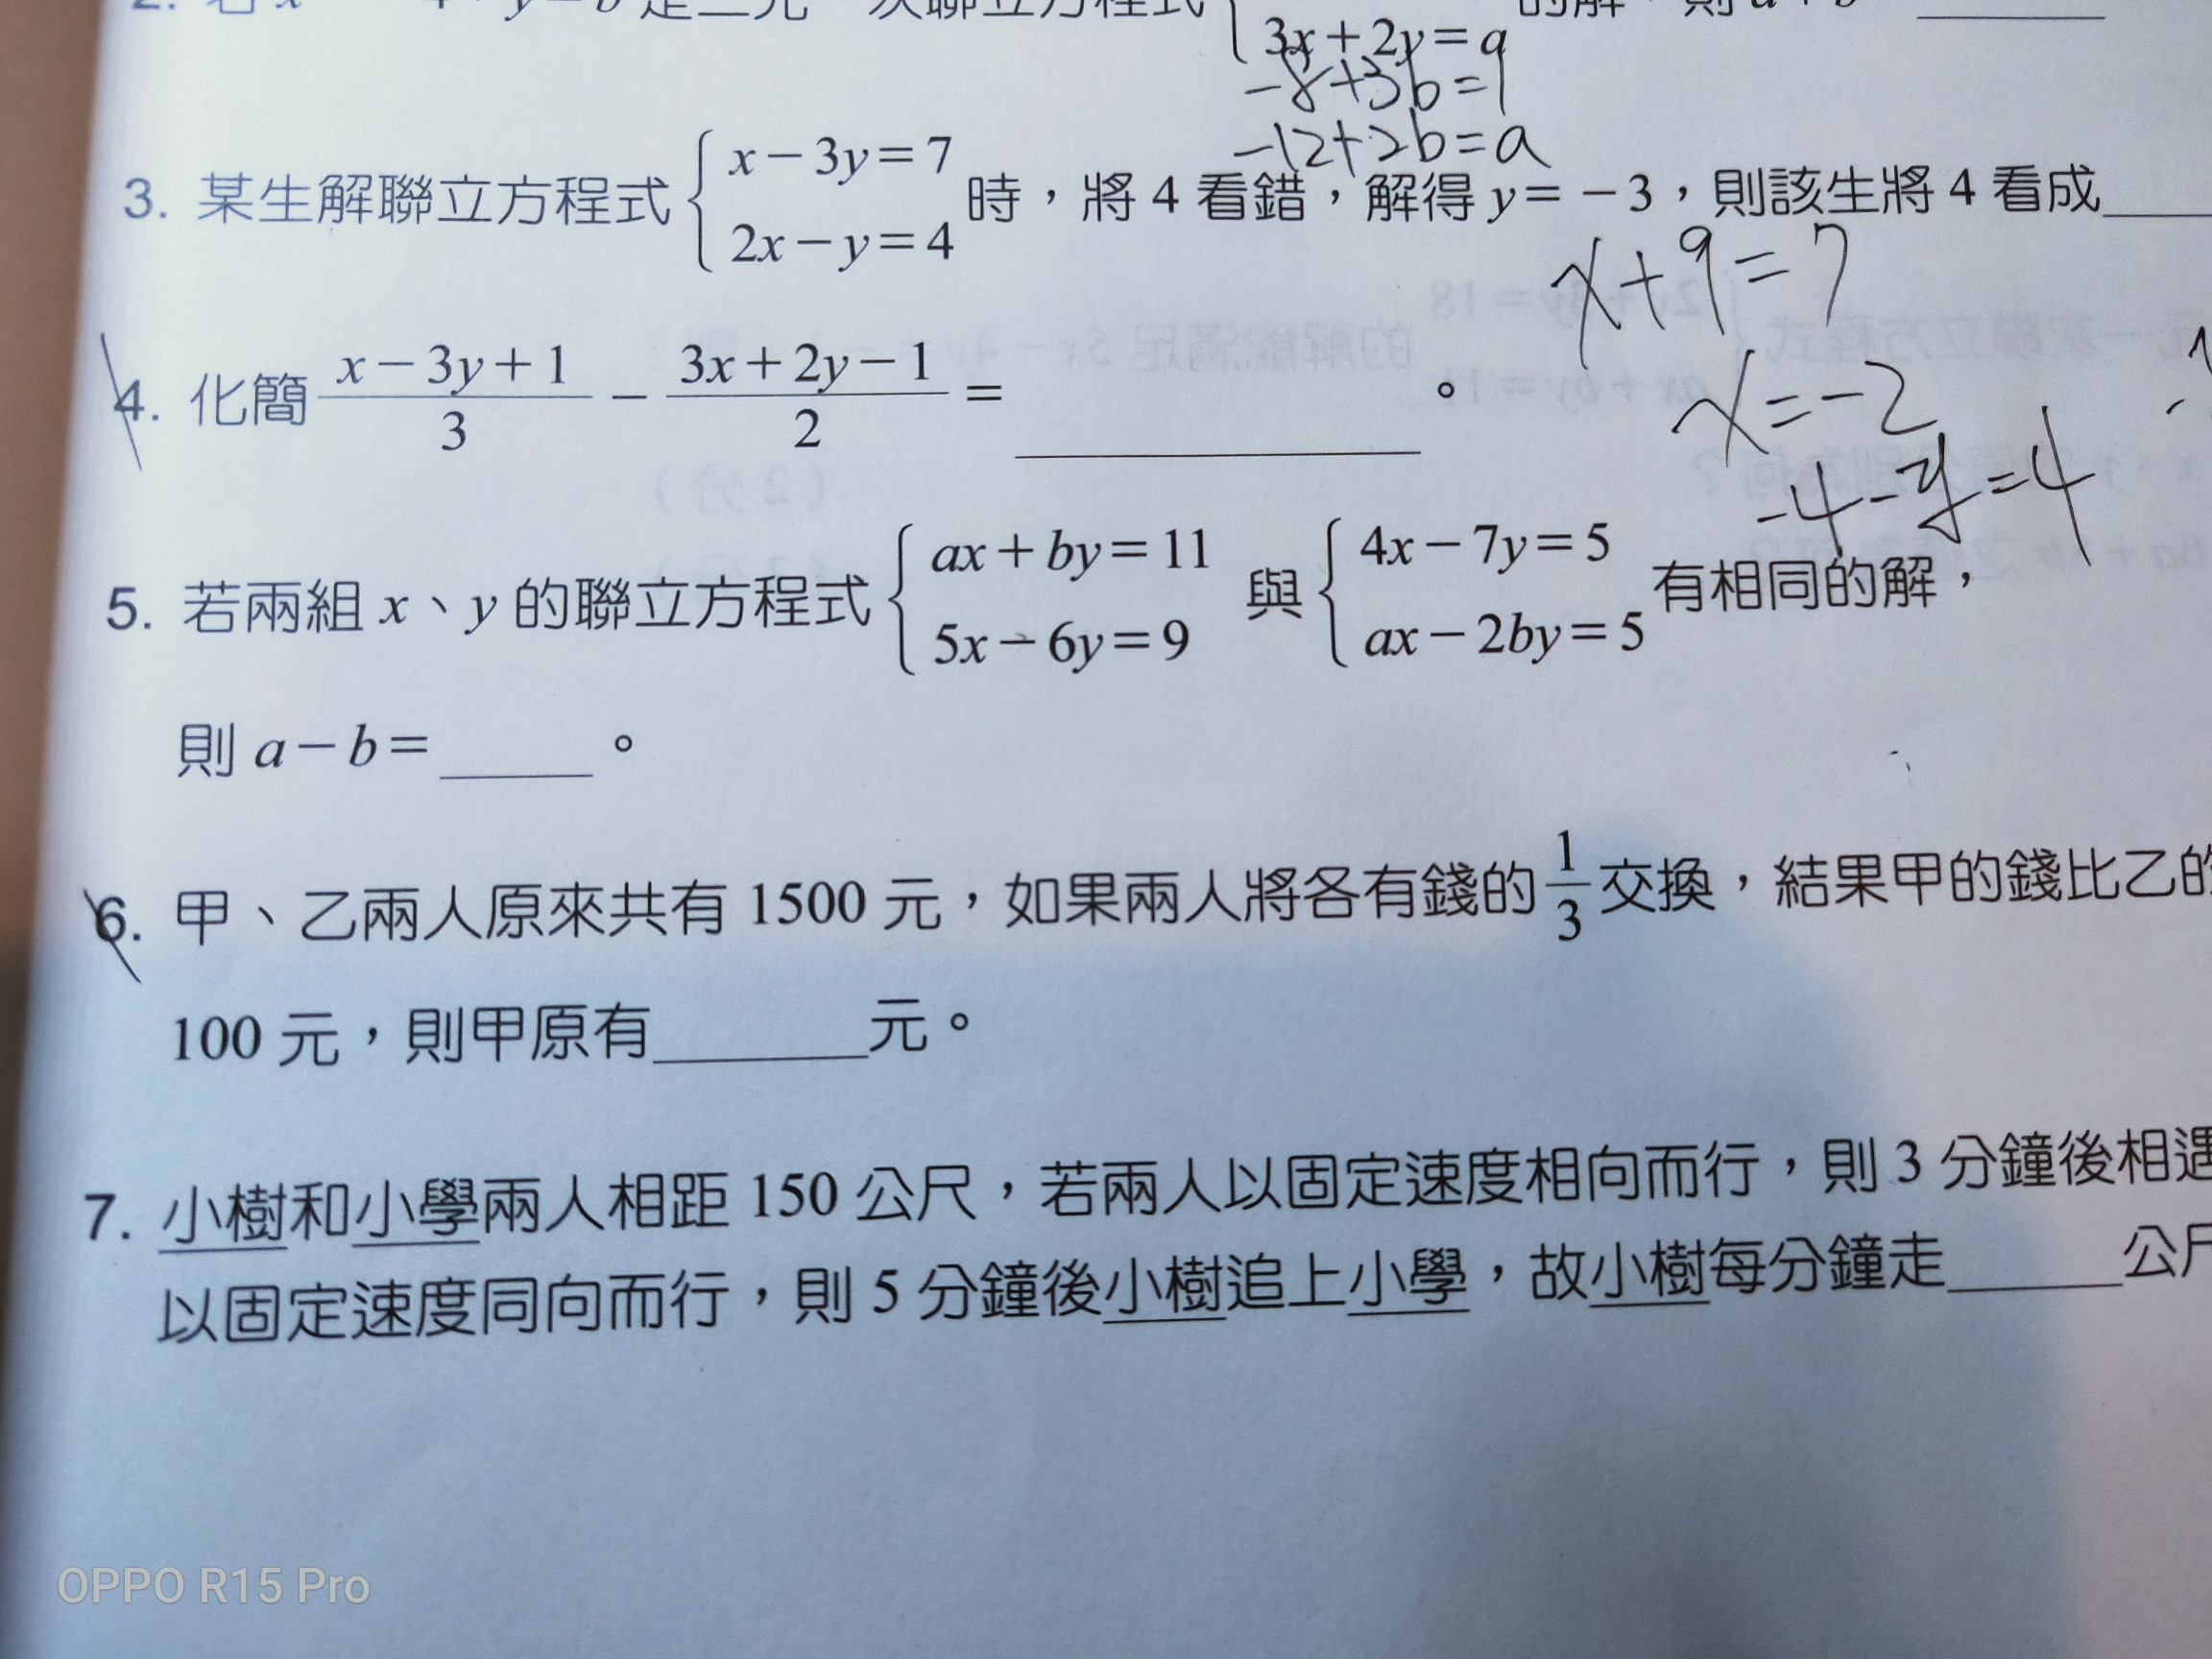 3x+2y=a
-8+3b=1
-12+2b=a
3. 某生解聯立方程式 { x-3y=7 2x-y=4 時，將 4 看錯，解得 y=-3，則該生將 4 看成____
x+9=7
x=-2
-4-y=4
4. 化簡 (x-3y+1)/3 - (3x+2y-1)/2 = ________。
5. 若兩組 x、y 的聯立方程式 { ax+by=11 5x-6y=9 與 { 4x-7y=5 ax-2by=5 有相同的解，
則 a-b=____。
6. 甲、乙兩人原來共有 1500 元，如果兩人將各有錢的 1/3 交換，結果甲的錢比乙的
100 元，則甲原有______元。
7. 小樹和小學兩人相距 150 公尺，若兩人以固定速度相向而行，則 3 分鐘後相遇
以固定速度同向而行，則 5 分鐘後小樹追上小學，故小樹每分鐘走_____公尺
OPPO R15 Pro